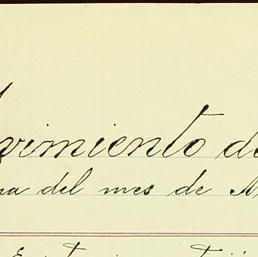 vimiento de
na del mes de M